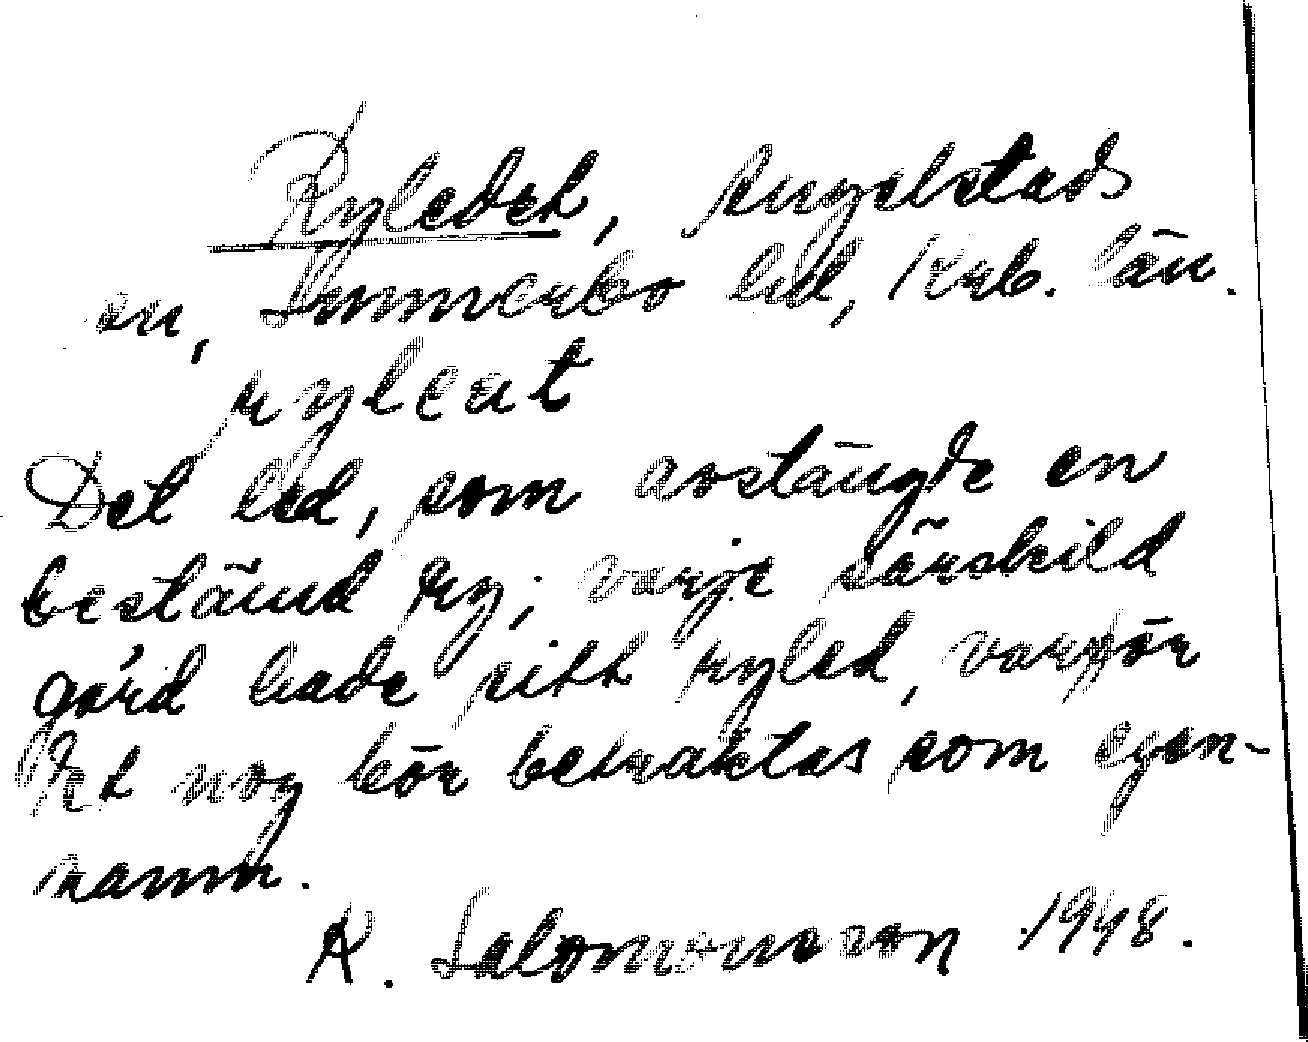 Ryledet, Ingelstads
sn, Sunnerbo hd, Krb. län.
ryleat
Det led, som avstängde en
bestämd ry; varje särskild
gård hade sitt ryled, varför
det nog bör betraktas som egen-
namn.
A. Salomonsson 1948.